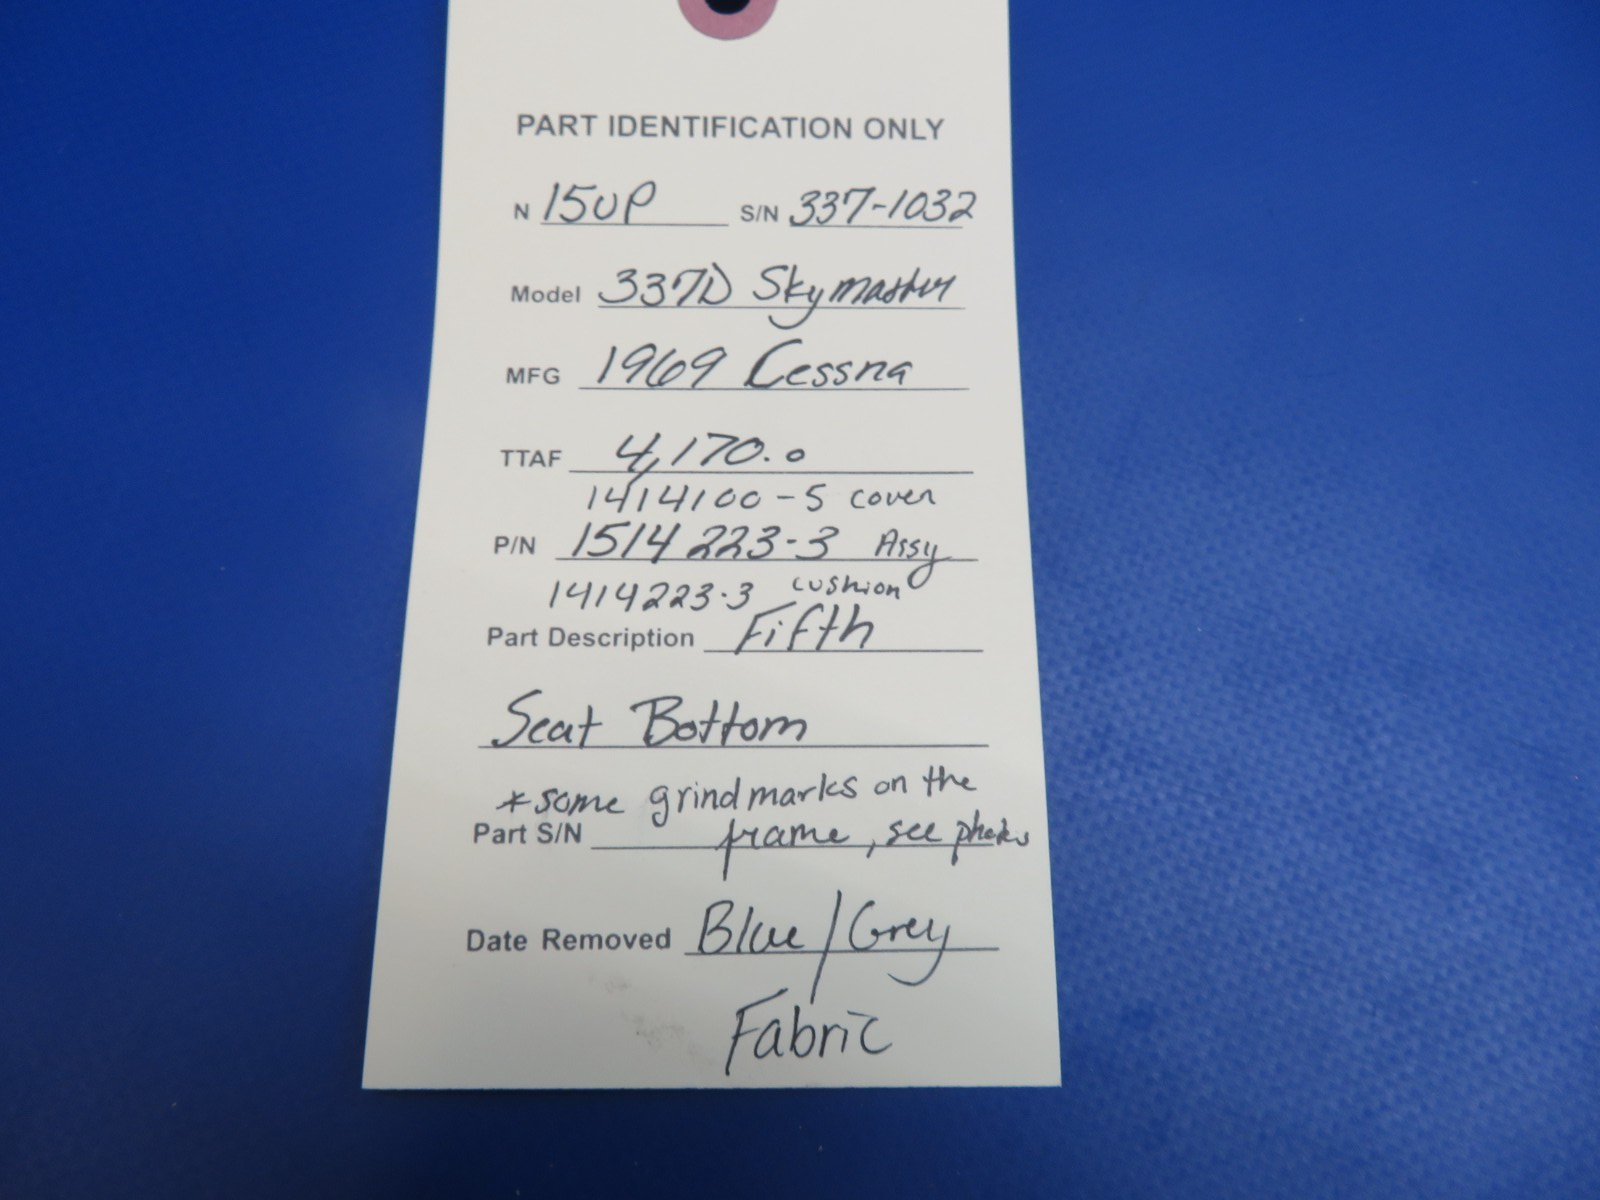 PART IDENTIFICATION ONLY
N 15UP S/N 337-1032
Model 337D Skymaster
MFG 1969 Cessna
TTAF 4,170.0
1414100-5 cover
P/N 1514223-3 Assy
1414223-3 cushion
Part Description Fifth
Seat Bottom
*some grind marks on the
Part S/N frame, see photos
Date Removed Blue/Grey
Fabric